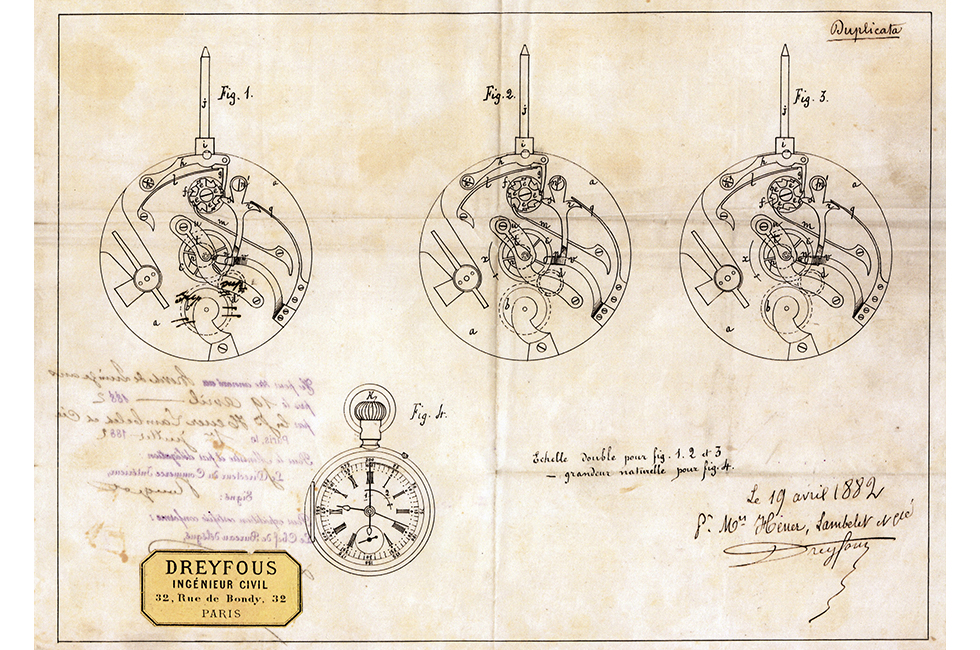 Duplicata
Fig. 1.
Fig. 2.
Fig. 3.
Fig. 4.
Echelle double pour fig. 1. 2 et 3
— grandeur naturelle pour fig. 4.
Le 19 avril 1882
Heuer, Lambelet et Cie
Dreyfous
de Quinze ans
pris le 19 avril 1882
par Heuer Lambelet et Cie
Paris, le 1er juillet 1882
Pour le Ministre et par délégation
Le Directeur du Commerce Intérieur
Signé:
Pour expédition certifiée conforme:
Le Chef du Bureau délégué,
DREYFOUS
INGÉNIEUR CIVIL
32, Rue de Bondy, 32
PARIS